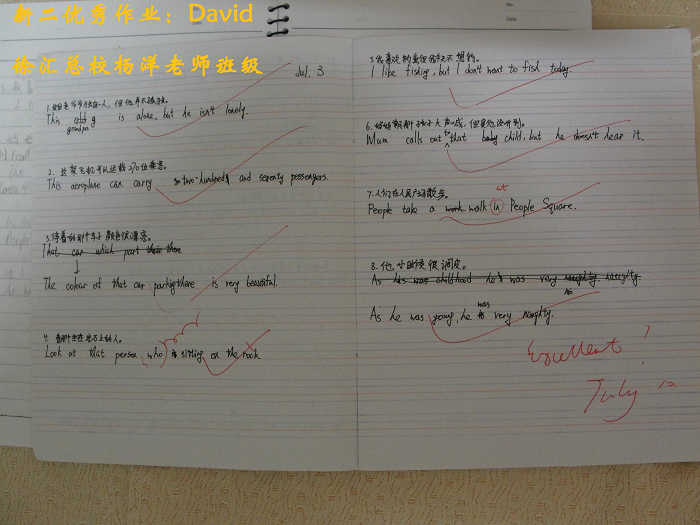 新二优秀作业：David
徐汇总校杨洋老师班级
No.
Date
Jul. 3
This grandpa is alone, but he isn't lonely.
2. 这架飞机可以运载270位乘客。
This aeroplane can carry two-hundred and seventy passengers.
3. 停着的那个车子颜色很漂亮。
That car which part there
The colour of that car parking there is very beautiful.
4. 看那个坐在岩石上的人。
Look at that person (who) is sitting on the rock.
I like fishing, but I don't want to fish today.
Mum calls out to that child, but he doesn't hear it.
7. 人们在人民广场散步。
at
People take a walk in People Square.
8. 他小时候很调皮。
As his was childhood he was very naughty naughty.
was
As he was young, he is very naughty.
Excellent!
July